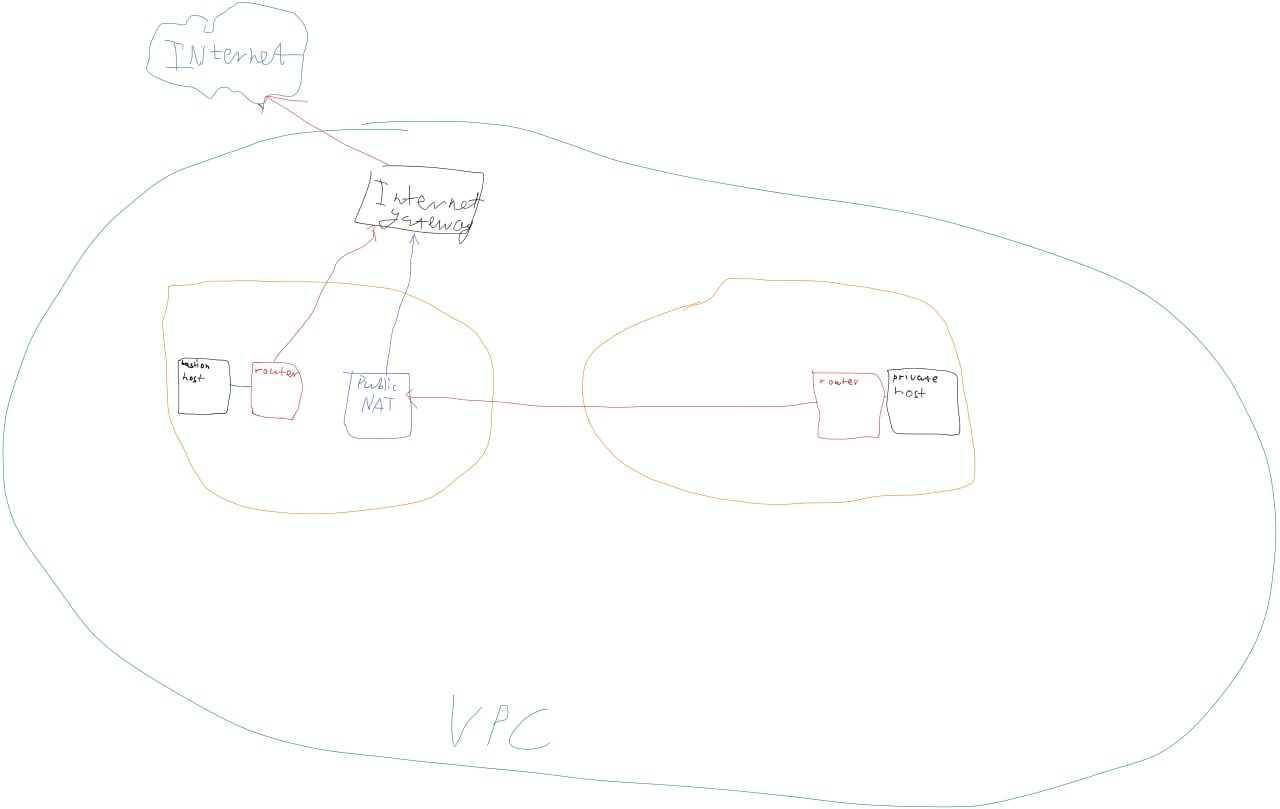 INternet
Internet
gateway
bastion
host
router
Public
NAT
router
private
host
VPC